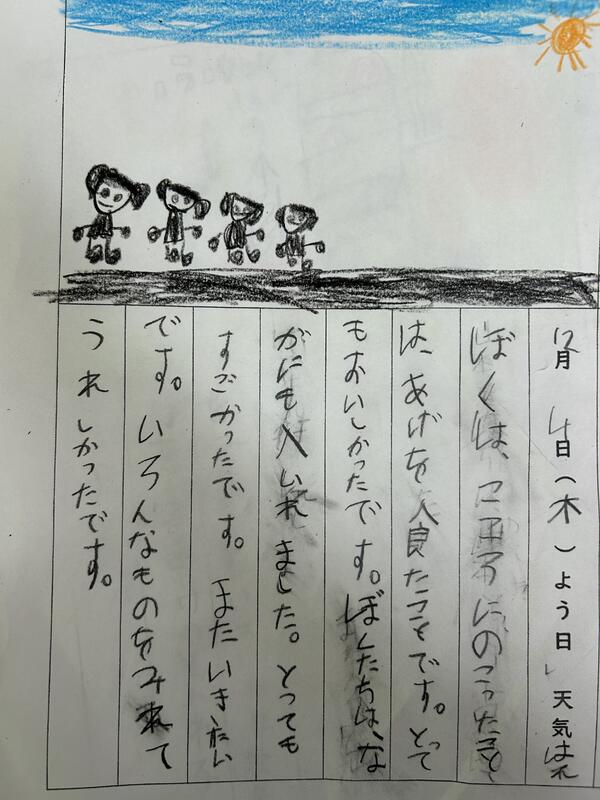 12月 4日(木)よう日 天気はれ
ぼくは、こころにのこったこと
は、あげを食たことです。とって
もおいしかったです。ぼくたちは、な
がにも入いれました。とっても
すごかったです。またいきたい
です。いろんなものをみれて
うれしかったです。